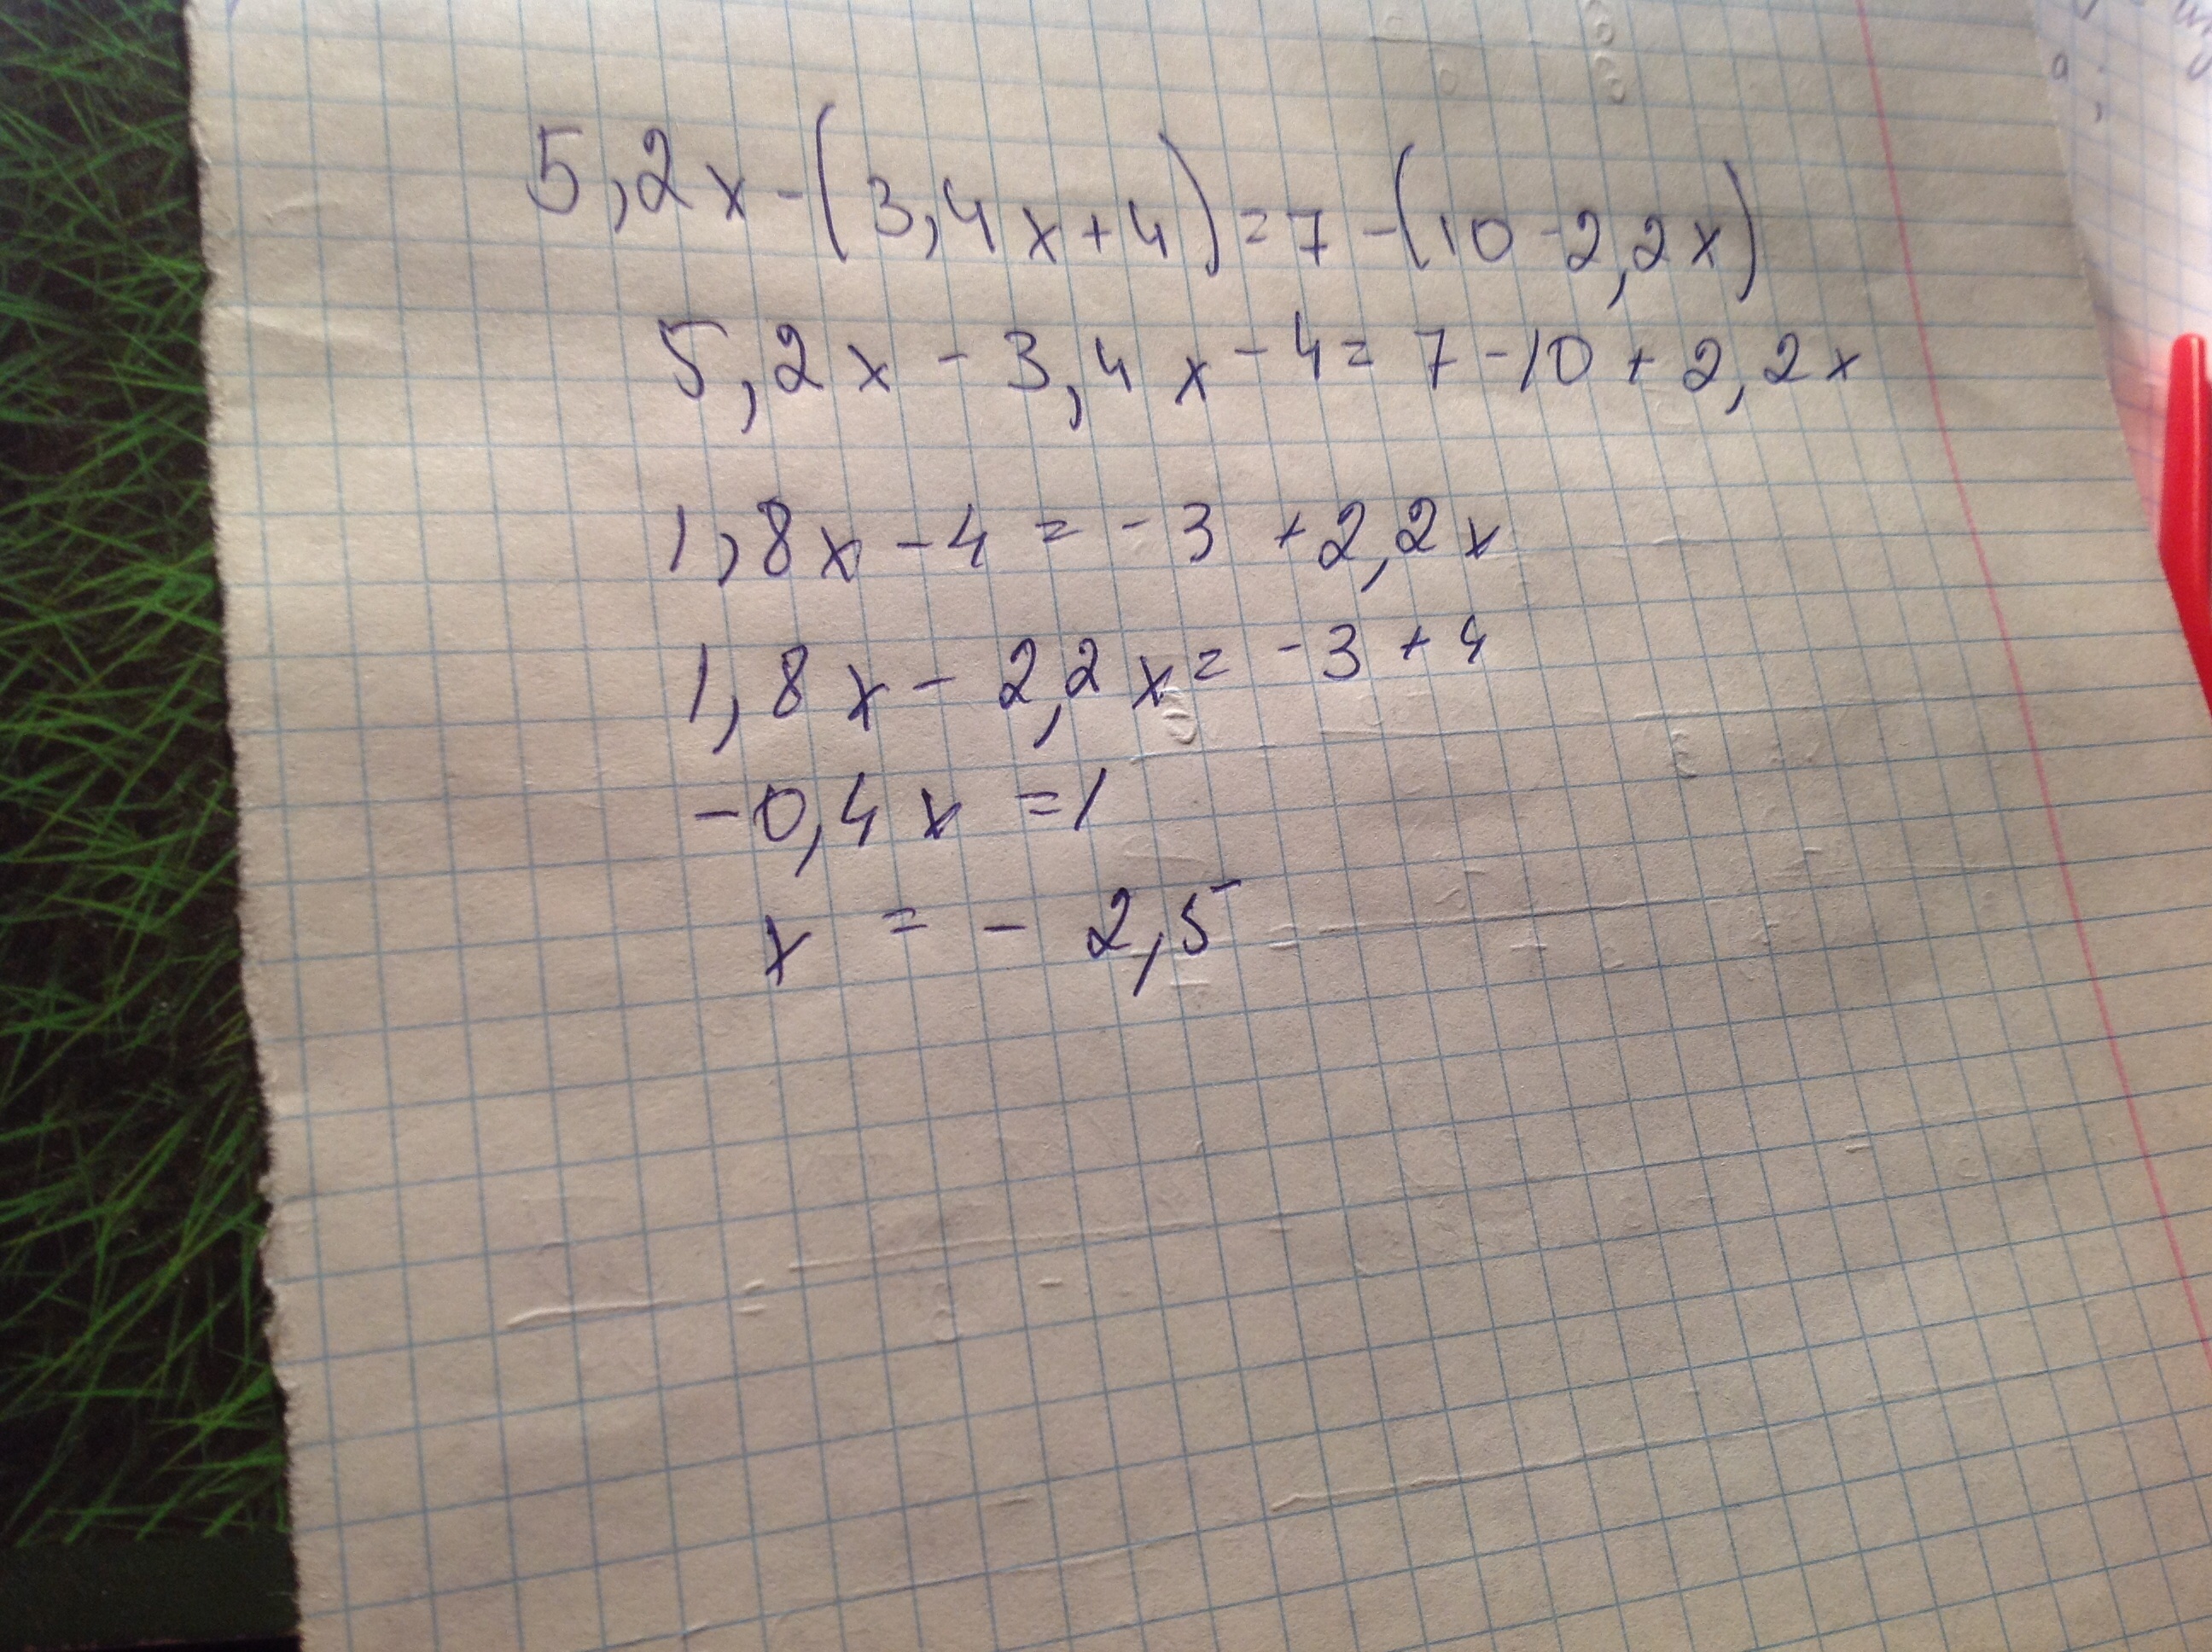 5,2x-(3,4x+4)=7-(10-2,2x)
5,2x-3,4x-4=7-10+2,2x
1,8x-4=-3+2,2x
1,8x-2,2x=-3+4
-0,4x=1
x=-2,5